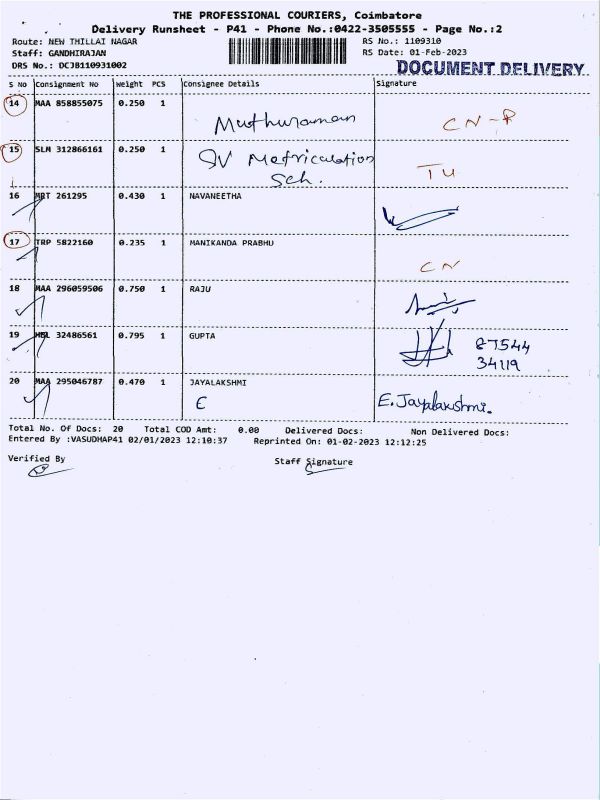 THE PROFESSIONAL COURIERS, Coimbatore
Delivery Runsheet - P41 - Phone No.:0422-3505555 - Page No.:2
Route: NEW THILLAI NAGAR
RS No.: 1109310
Staff: GANDHIRAJAN
RS Date: 01-Feb-2023
DRS No.: DCJB110931002
DOCUMENT DELIVERY
S No Consignment No Weight PCS Consignee Details Signature
14 MAA 858855075 0.250 1
Muthuraman CN-R
15 SLM 312866161 0.250 1 SV Matriculation
Sch. TU
16 MRT 261295 0.430 1 NAVANEETHA
17 TRP 5822160 0.235 1 MANIKANDA PRABHU
CN
18 MAA 296059506 0.750 1 RAJU
19 32486561 0.795 1 GUPTA
87544
34119
20 MAA 295046787 0.470 1 JAYALAKSHMI
E E. Jayalakshmi.
Total No. Of Docs: 20 Total COD Amt: 0.00 Delivered Docs: Non Delivered Docs:
Entered By :VASUDHAP41 02/01/2023 12:10:37 Reprinted On: 01-02-2023 12:12:25
Verified By Staff Signature